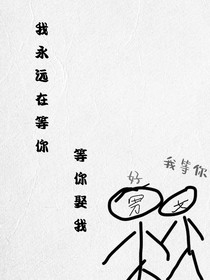 我永远在等你
等你娶我
我等你
好
男
女